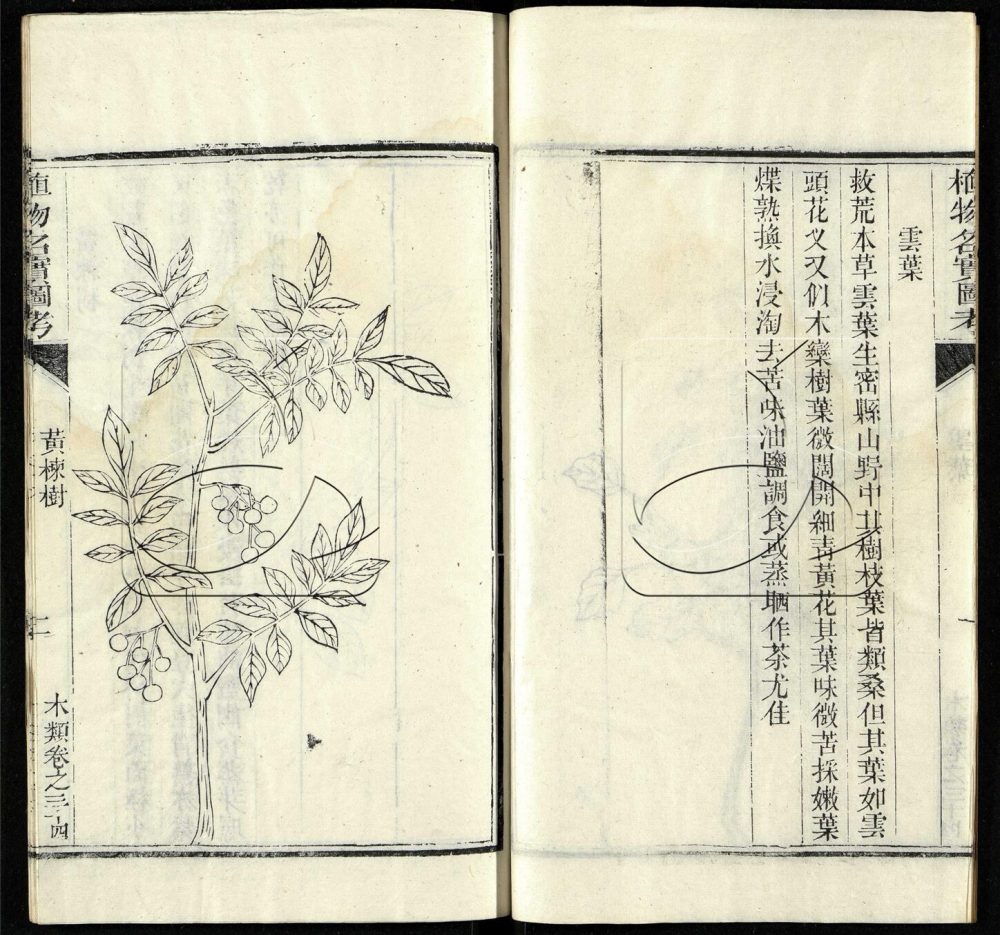 植物名實圖考
雲葉
救荒本草雲葉生密縣山野中其樹枝葉皆類桑但其葉如雲
頭花叉又似木欒樹葉微闊開細青黃花其葉味微苦採嫩葉
煠熟換水浸淘去苦味油鹽調食或蒸晒作茶尤佳
植物名實圖考
黃楝樹
二
木類卷之三十四